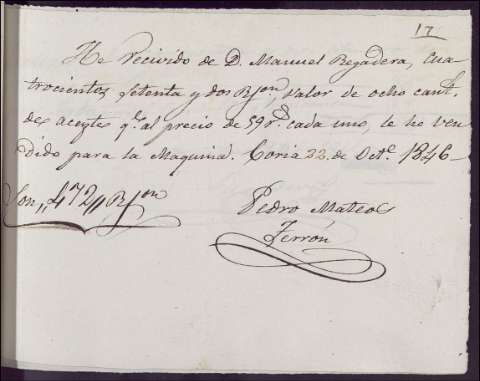 17
He Recivido de D. Manuel Regadera, cua
trocientos setenta y dos Rs on, valor de ocho cant.s
de aceyte q.e al precio de 59 rs cada uno, le he ven
dido para la Maquina. Coria 22 de Oct.e 1846
Son,, 472,, Rs on
Pedro Mateos
Terrón